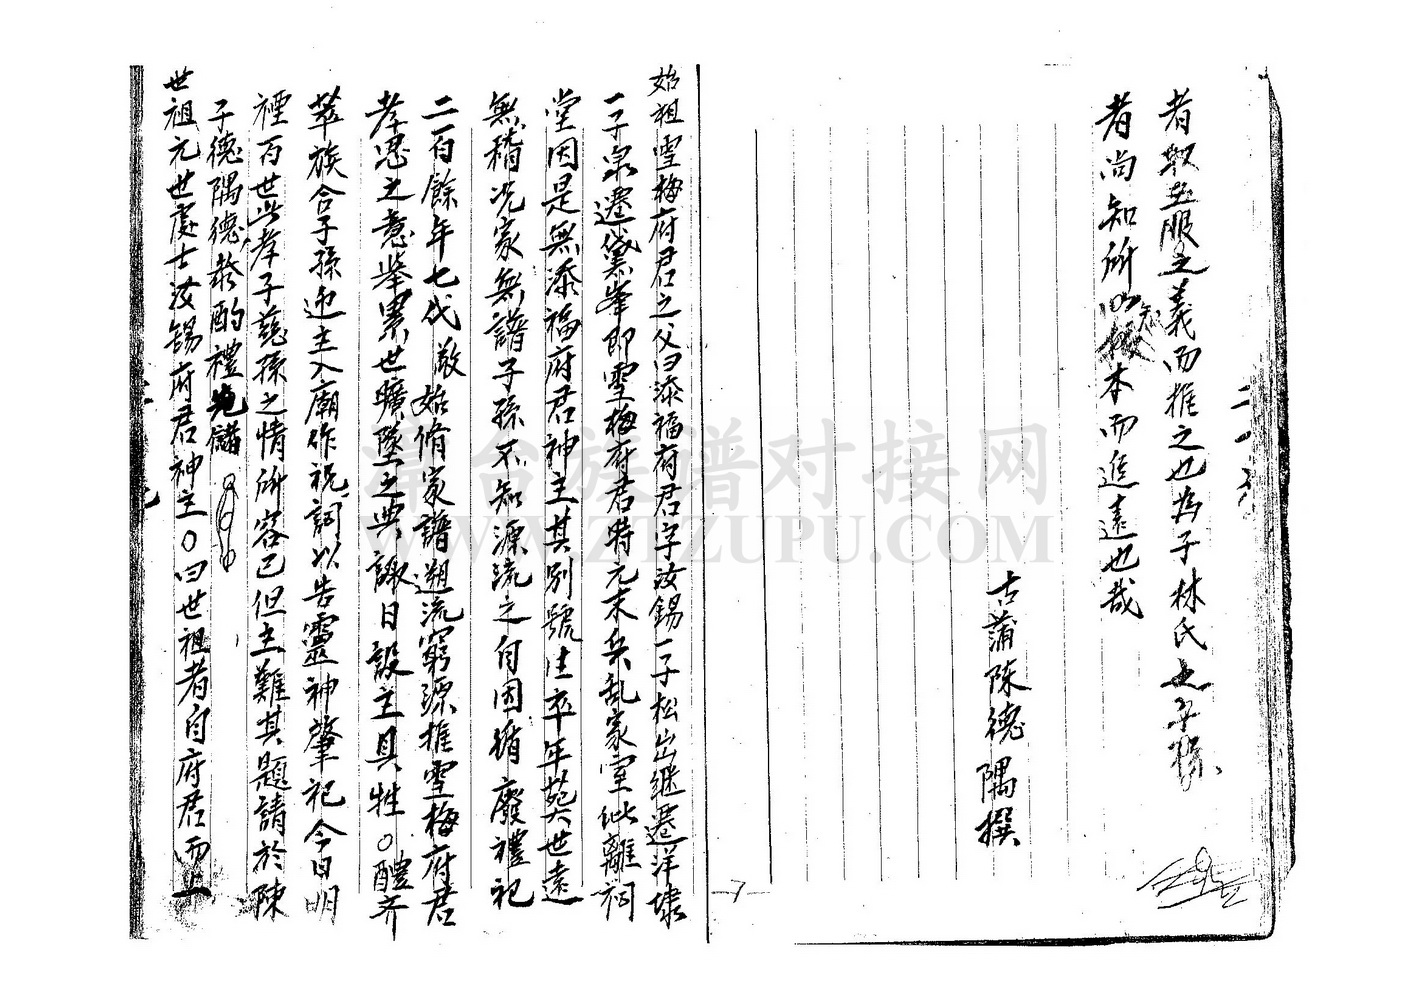 者取其服之義而推之也為子林氏之子孫
者尚知所以報本而追遠也哉
古蒲陳德隅撰
始祖雪梅府君之父曰添福府君字汝錫一子松山繼遷洋埭
一子泉遷黛峯即雪梅府君時元末兵乱家室仳離祠
堂因是無添福府君神主其別號生卒年葬世遠
無稽況家無譜子孫不知源流之自因循廢禮祀
二百餘年七代 始脩家譜遡流窮源推雪梅府君
孝思之意舉累世曠墜之典諏日設主具牲○醴齐
萃族合子孫迎主入廟作祝詞以告靈神肇祀今日明
禋百世此孝子慈孫之情所容已但主難其題請於陳
子德隅德 酌禮
世祖元世處士汝錫府君神主○曰世祖者自府君而上
7
蒲台族谱对接网
WWW.ZTZUPU.COM